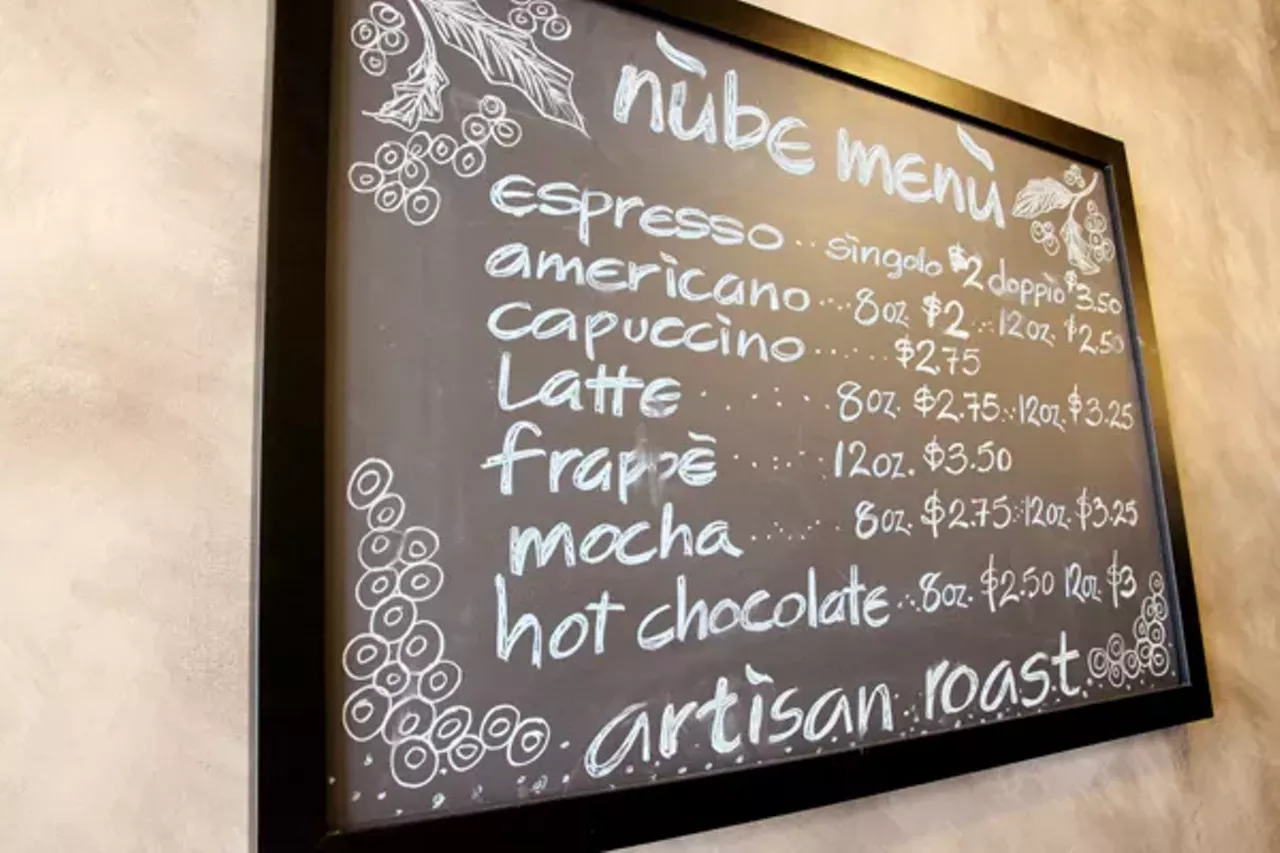 nùbe menù
espresso .. singolo $2 doppio $3.50
americano .... 8oz. $2 ... 12oz. $2.50
capuccino ...... $2.75
Latte ...... 8oz. $2.75 .. 12oz. $3.25
frappè ...... 12oz. $3.50
mocha ...... 8oz. $2.75 .. 12oz. $3.25
hot chocolate ... 8oz. $2.50 12oz. $3
artisan roast